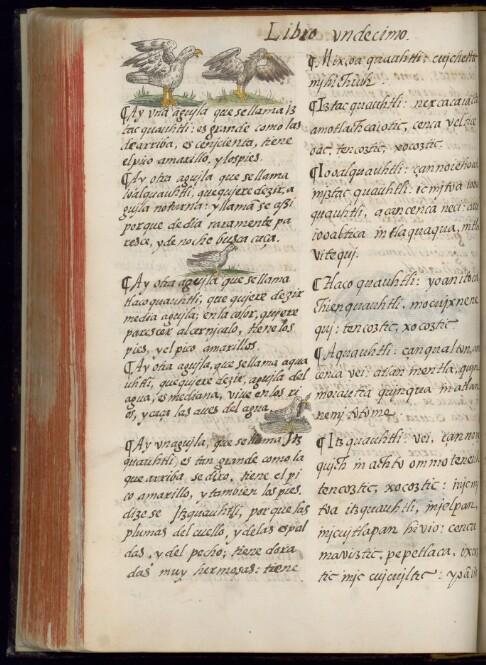 Libro vndecimo.
¶Ay vna aguila que se llama iz
tac quauhtli: es grande como las
de arriba, es cenizienta, tiene
el pico amarillo, y los pies.
¶Ay otra aguila que se llama
ioalquauhtli, que quiere dezir, a
guila noturna: y llama se assi
porque de dia raramente pa
resce, y de noche busca caça.
¶Ay otra aguila que se llama
tlacoquauhtli, que quiere dezir
media aguila; en la color, quiere
parescer al cernjcalo, tiene los
pies, y el pico amarillos.
¶Ay otra aguila, que se llama aqua
uhtli, que quiere dezir, aguila del
agua, es mediana, viue en los ri
os, y caça las aues del agua.
¶Ay vna guila, que se llama Jtz
quauhtli, es tan grande como la
que arriba se dixo, tiene el pi
co amarillo, y tambien los pies.
dize se Jtzquauhtli, porque las
plumas del cuello, y de las espal
das, y del pecho, tiene dora
das muy hermosas: tiene
¶Mixcoa quauhtli: cujchectic
¶Iztac quauhtli: nexcacaiactic
amo tlactcaiotic, cenca yel
tencoztic, xocoztic.
¶Iooalquauhtli: çan no iehoatl
in jztac quauhtli: ic mjtoa iooal
quauhtli, acan cenca neci:
iooaltica in tlaquaqua,
vitequi.
¶Tlaco quauhtli: yoan itoca
tlhienquauhtli, mocujxnene
qui: tencoztic, xocoztic
¶Aquauhtli: çan qualton,
cenca vei: atlan nentla,
mocaustia quinqua in atlan
nenj totome.
¶Itzquauhtli: vei, çan no
quich in achto omoteneuh
tencoztic, xocoztic: injc mj
toa itzquauhtli, in jelpan,
in jcujtlapan hivio: cenca
maviztic, pepetlaca,
tic mjc cujcujltic: